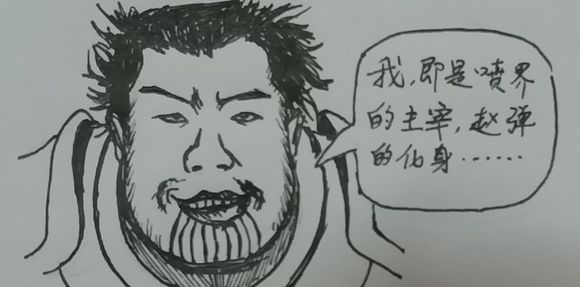 我,即是喷界
的主宰,赵弹
的化身……